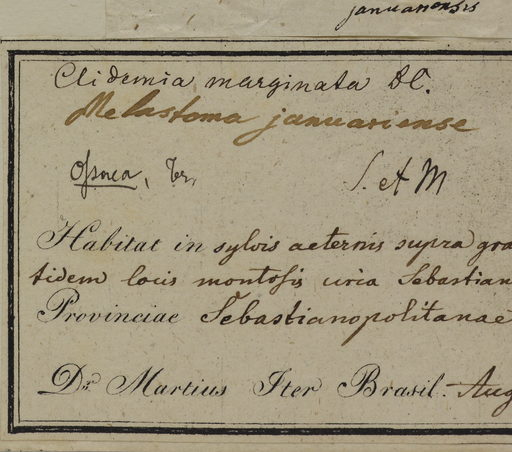 januariensis
Clidemia marginata DC.
Melastoma januariense
Ossaea, Tr.
S. et M
Habitat in sylvis aeternis supra gra
tidem locis montosis circa Sebastian
Provinciae Sebastianopolitanae
Dr. Martius Iter Brasil. Aug